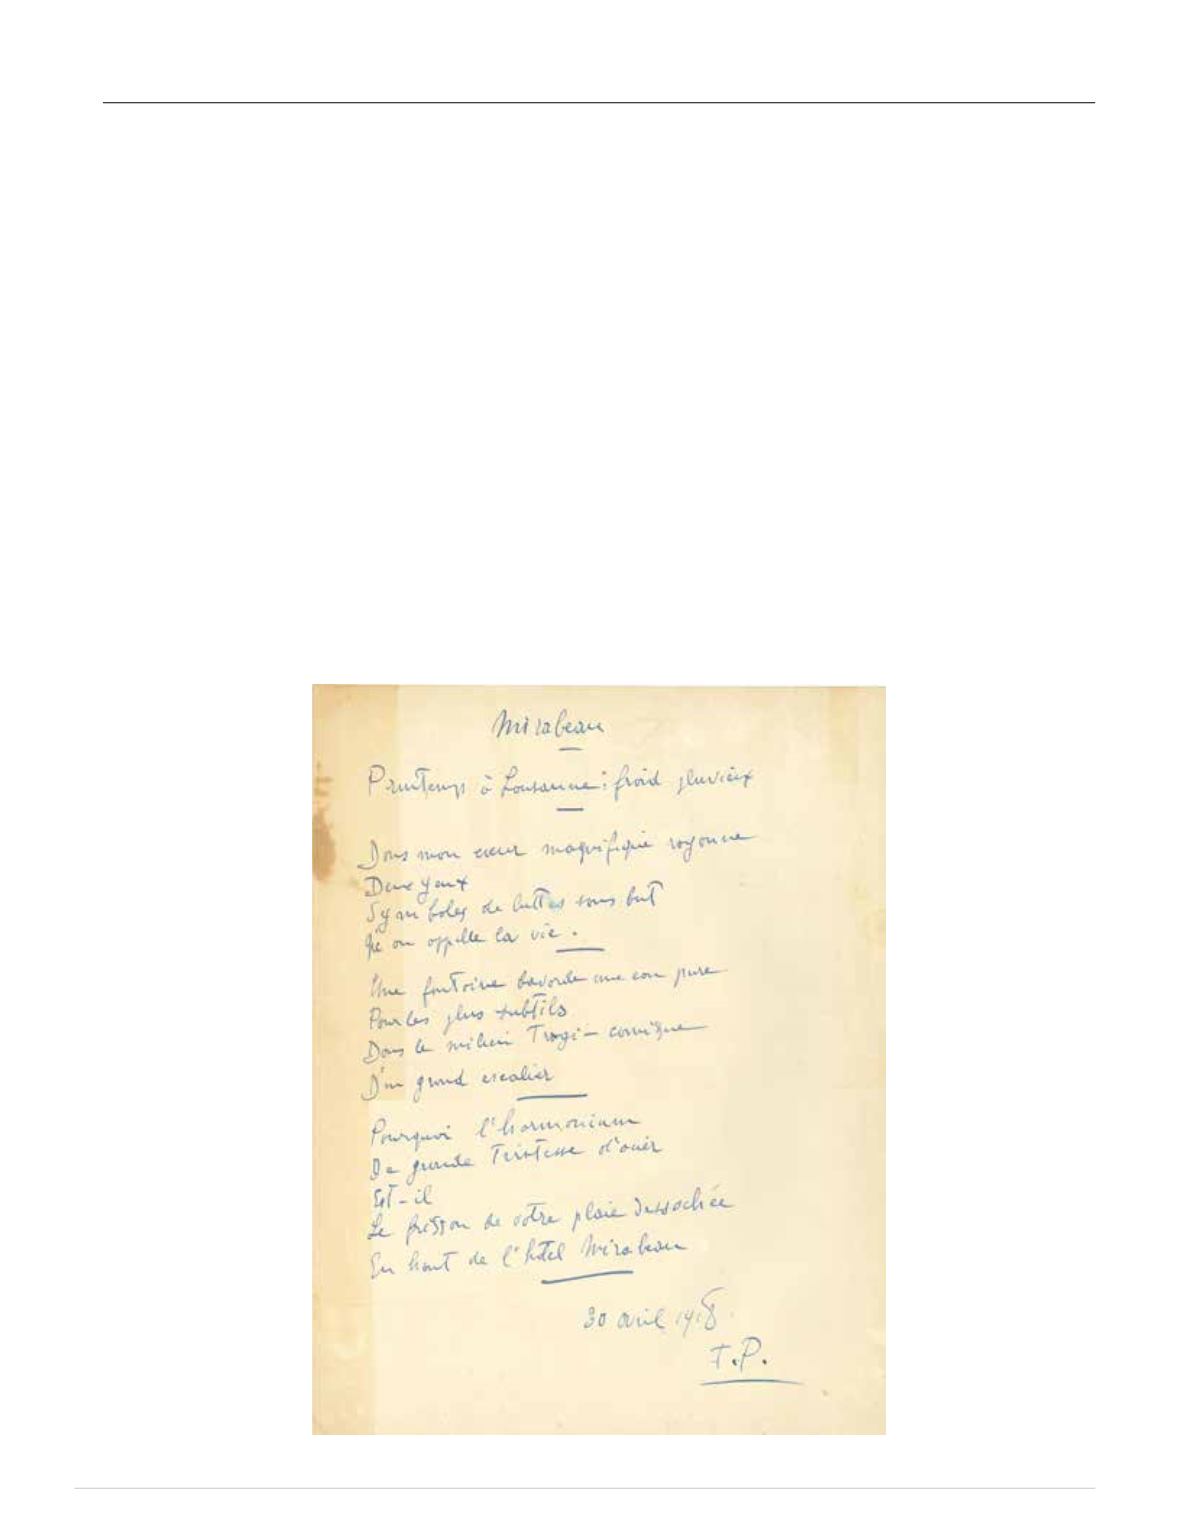 Mirabeau
Printemps à Lousanne : froid pluvieux
Dans mon cœur magnifique rayonne
Deux yeux
Symboles de luttes sans but
Qu'on appelle la vie.
Une fontaine bavarde une eau pure
Pour les plus subtils
Dans le milieu Tragi-comique
D'un grand escalier
Pourquoi l'harmonium
De grande Tristesse d'
Est-il
Le frisson de votre plaie dessechée
En haut de l'hôtel Mirabeau
30 avril 1918.
F.P.